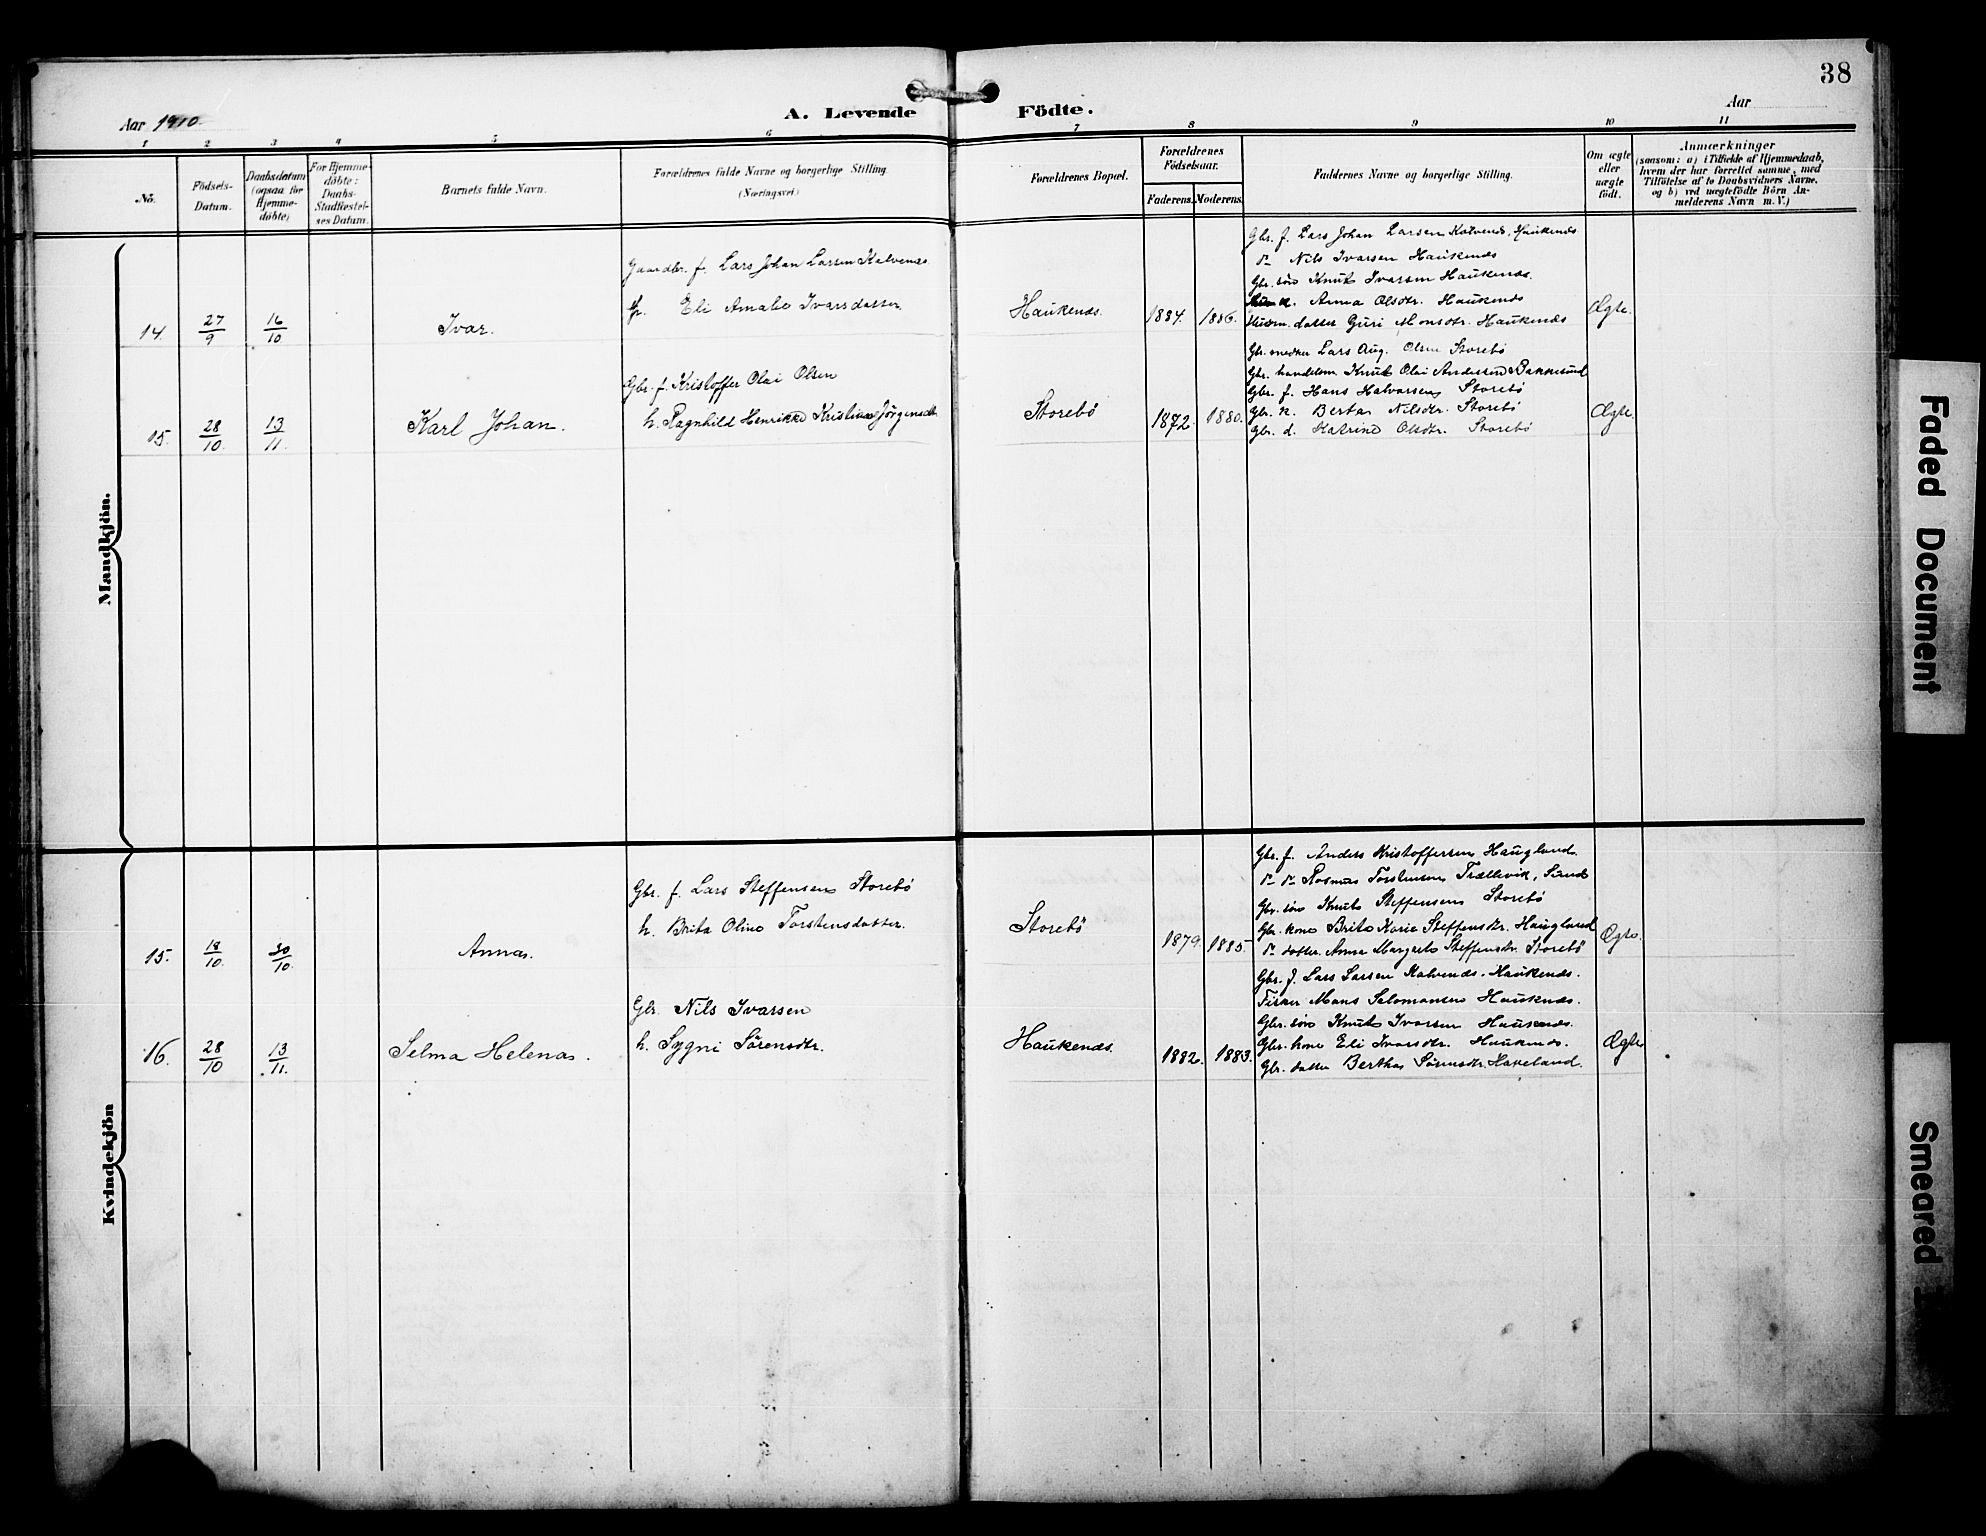 38
Aar 1910
A. Levende Födte.
Aar
1 2 3 4 5 6 7 8 9 10 11
No.
Födsels-
Datum.
Daabsdatum
(ogsaa for
Hjemme-
döbte)
For Hjemme-
döbte:
Daabs-
Stadfæstel-
ses Datum.
Barnets fulde Navn.
Forældrenes fulde Navne og borgerlige Stilling.
(Næringsvei)
Forældrenes Bopæl.
Forældrenes
Födselsaar.
Faderens. Moderens.
Faddernes Navne og borgerlige Stilling.
Om ægte
eller
uægte
født.
Anmærkninger
(saasom: a) i Tilfælde af Hjemmedaab,
hvem der har forrettet samme, med
Tilføielse af to Daabsvidners Navne,
og b) ved uægtefödte Börn An-
melderens Navn m. V.)
Mandkjön.
14. 27/9 16/10 Ivar.
Gaardbr. f. Lars Johan Larsen Kalvenes
Eli Amalie Ivarsdatter
Haukenæs. 1884. 1886.
Gbr. f. Lars Johan Larsen Kalvenes, Haukenæs
Nils Ivarsen Haukenæs
Gbr. søn Knut Ivarsen Haukenæs.
k. Anna Olsdtr. Haukenæs
Husm. datter Guri Monsdtr. Haukenæs
Ægte.
15. 28/10 13/11. Karl Johan.
Gbr. f. Kristoffer Olai Olsen
h. Ragnhild Henrikke Kristiane Jörgensdtr
Storebö 1872. 1880.
Gbr. smeder Lars Aug. Olsen Storebö
Gbr. handelsm. Knut Olai Andersen Bakkesund
Gbr. f. Hans Halvorsen Storebö
Gbr. k. Berta Nilsdtr. Storebö
Gbr. d. Katrine Olsdtr. Storebö
Ægte.
Kvindekjön
15. 18/10. 30/10 Anna.
Gbr. f. Lars Steffensen Storebö
h. Brita Oline Torstensdatter.
Storebö 1879. 1885.
Gbr. f. Anders Kristoffersen Haugland.
Rasmus Torstensen Trællevik, Sund
Gbr. søn Knut Steffensen Storebö
Gbr. kone Brita Karie Steffensdtr. Haugland
datter Anna Margrete Steffensdtr. Storebö
Ægte.
16. 28/10 13/11. Selma Helena.
Gbr. Nils Ivarsen
h. Sygni Sörensdtr.
Haukenæs. 1882. 1883.
Gbr. f. Lars Larsen Kalvenæs. Haukenæs.
Fisker Mons Salomonsen Haukenæs.
Gbr. søn Knut Ivarsen Haukenæs.
Gbr. kone Eli Ivarsdtr. Haukenæs.
Gbr. datter Bertha Sörensdtr. Haveland.
Ægte
Faded Document
Smeared